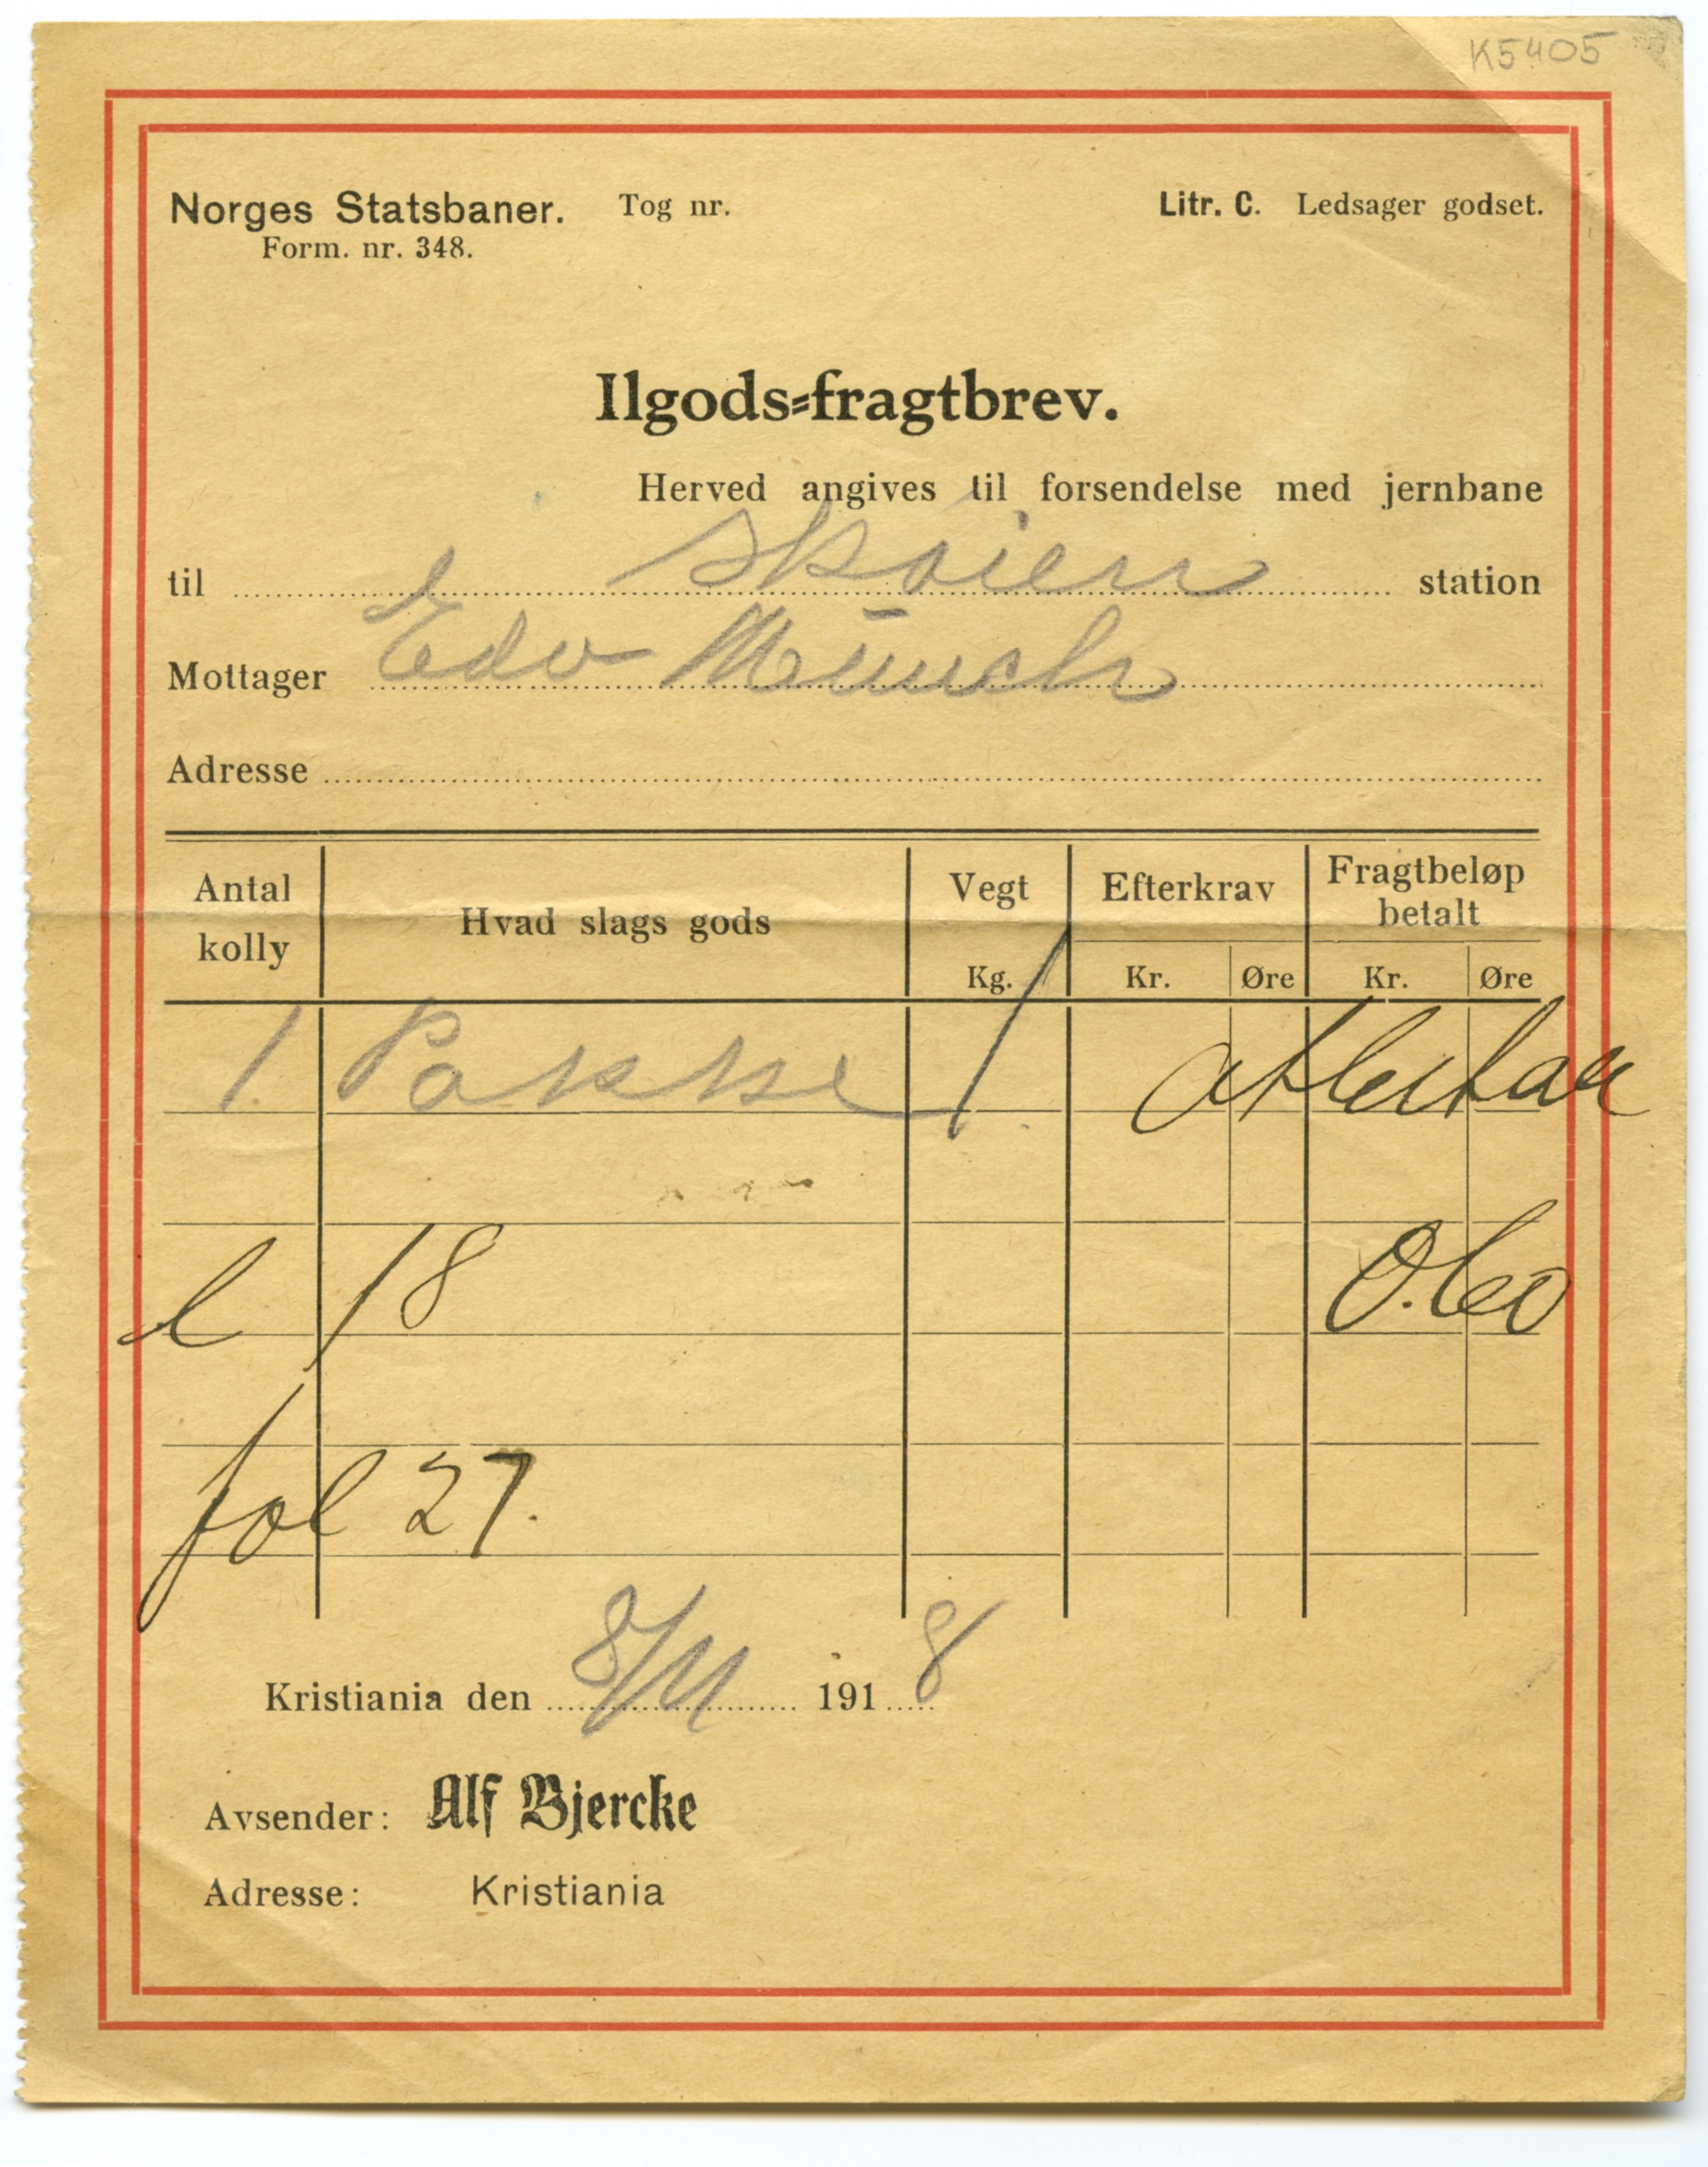 K5405
Norges Statsbaner. Tog nr. Litr. C. Ledsager godset.
Form. nr. 348.
Ilgods=fragtbrev.
Herved angives til forsendelse med jernbane
til Skøien station
Mottager Edv Münch
Adresse
Antal kolly Hvad slags gods Vegt Kg. Efterkrav Kr. Øre Fragtbeløp betalt Kr. Øre
1 Pakke 1
l 18 0.60
fol 27.
Kristiania den 8/11 1918
Avsender: Alf Bjercke
Adresse: Kristiania